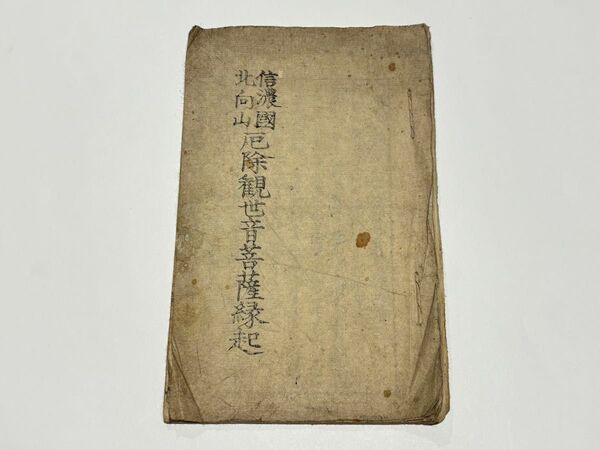 信濃國
北向山
厄除観世音菩薩縁起